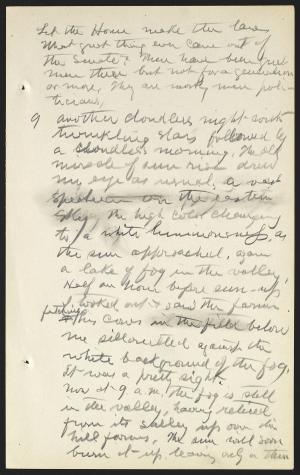 Let the House make the laws
What great thing ever came out of
the Senate? There have been great
men there but not for a generation
or more, they are mostly mere poli-
ticians,
9 another cloudless night with
twinkling stars followed by
a cloudless morning. The old
miracle of sun rise drew
my eye as usual, a vast
spectrum on the eastern
sky, the high color changing
to a white luminousness as
the sun approached, again
a lake of fog in the valley,
Half an hour before sun-up
I looked out & saw the farmer
fetching his cows in the field below
me silhouetted against the
white background of the fog.
It was a pretty sight.
Now at 9 a.m. the fog is still
in the valley, having retired
from its up over the
hill farms, The sun will soon
burn it up, leaving only a thin